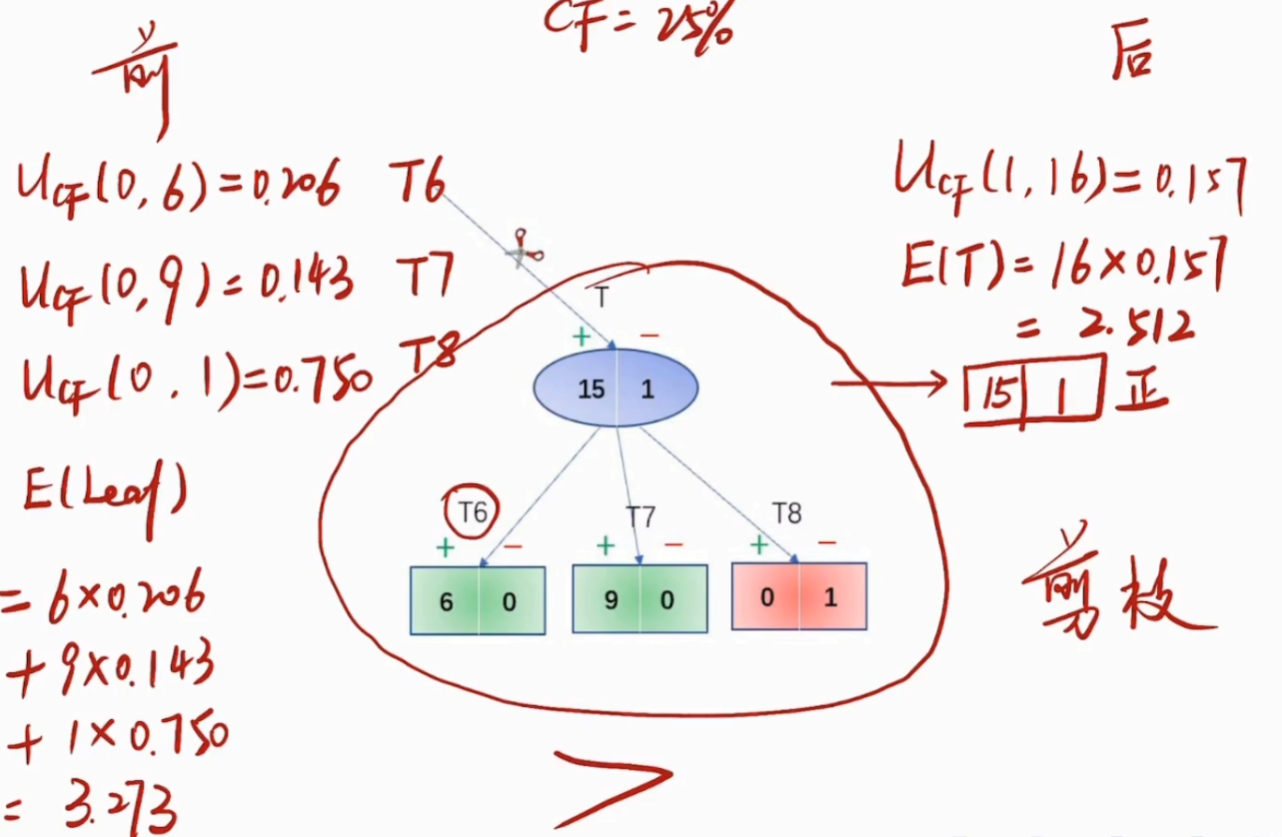 CF = 25%
前
U_CF(0,6)=0.206 T6
U_CF(0,9)=0.143 T7
U_CF(0,1)=0.750 T8
E(Leaf)
=6×0.206
+9×0.143
+1×0.750
= 3.273
T
+ −
15 1
T6 T7 T8
+ − + − + −
6 0 9 0 0 1
>
后
U_CF(1,16)=0.157
E(T)=16×0.157
= 2.512
15 1 正
剪枝